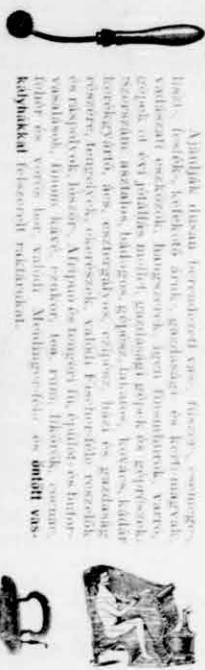 Ajánlják dúsan berendezett vas, fűszer, csemege,
liszt, festék, kefekötő áruk, gazdasági és kerti magvak,
vadászati eszközök, hangszerek, igen finom varró-
gépek öt évi jótállás mellett, gazdasági gépek és géprészek,
szerszám asztalos, bádogos, gépész, lakatos, kovács, kádár
kerékgyártó, ács, esztergályos, czipész, házi és gazdaság
részére, tengelyek, ekerészek, valódi Fischer-féle reszelők
és ráspolyok, lószőr, Afripun és tengeri fű, épület és bútor-
vasalások, finom kávé, czukor, tea, rum, likőrök, cognac,
fehér és vörös bor, valódi Meidinger-féle és öntött vas-
kályhákkal felszerelt raktárukat.